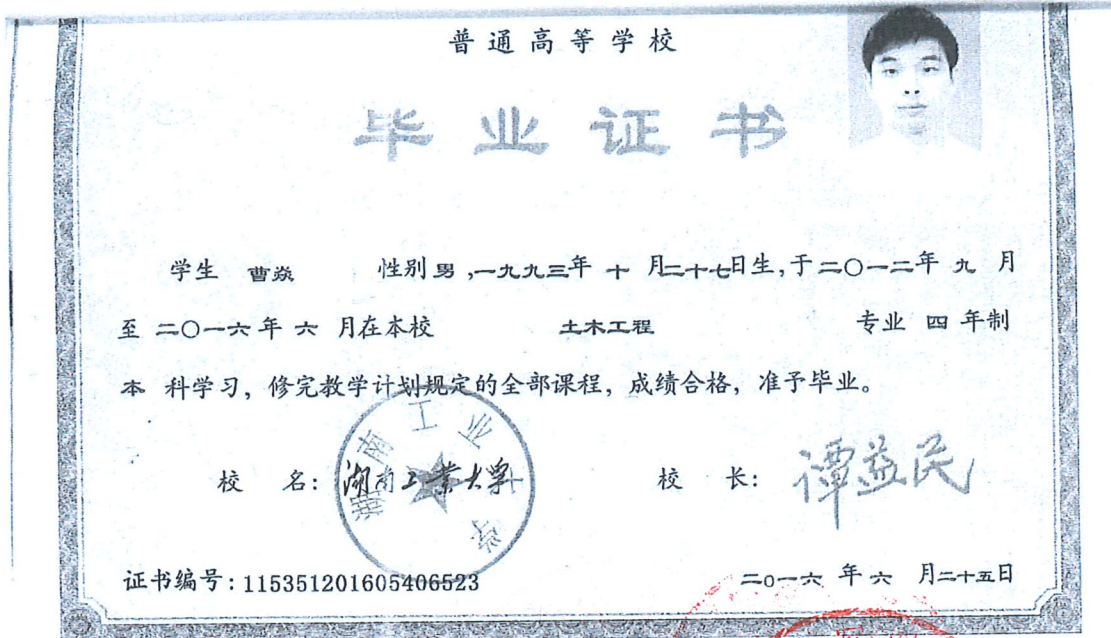 普通高等学校
毕业证书
学生 曹焱 性别 男 ,一九九三年 十 月二十七日生,于 二〇一二年 九 月
至 二〇一六 年 六 月在本校 土木工程 专业 四 年制
本 科学习，修完教学计划规定的全部课程，成绩合格，准予毕业。
校 名: 湖南工业大学 校 长: 谭益民
湖南工业大学
证书编号: 115351201605406523 二0一六 年 六 月二十五日